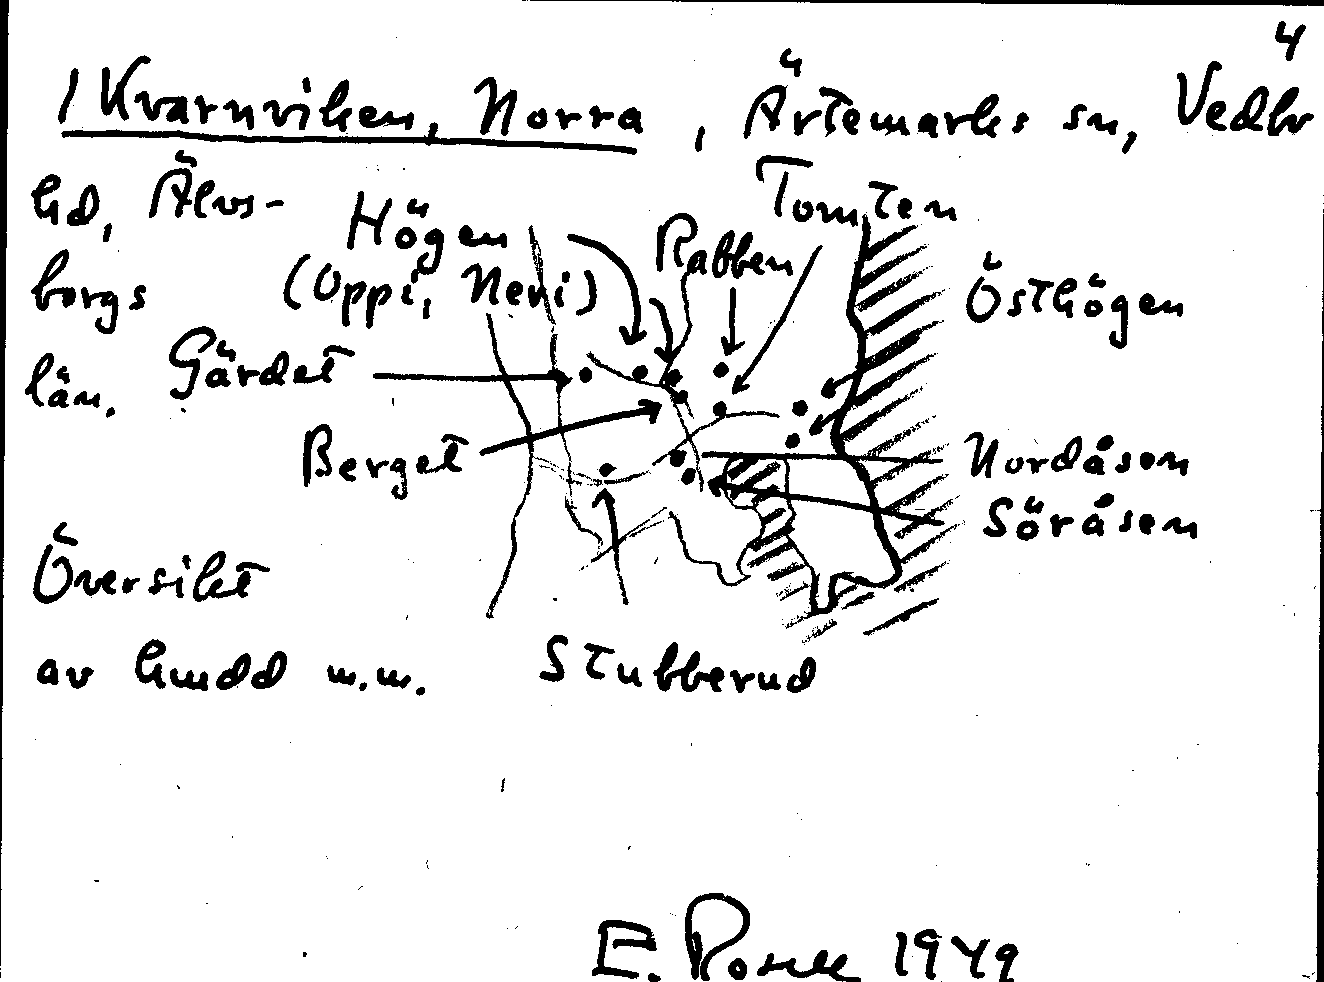 4
/ Kvarnviken, Norra, Ärtemarks sn, Vedbo
hd, Älvs-
borgs
län.
Högen
(Oppi, Neri)
Rabben
Tomten
Östhögen
Gärdet
Berget
Nordåsen
Söråsen
Stubberud
Översikt
av hmdd m.m.
E. Rosell 1949